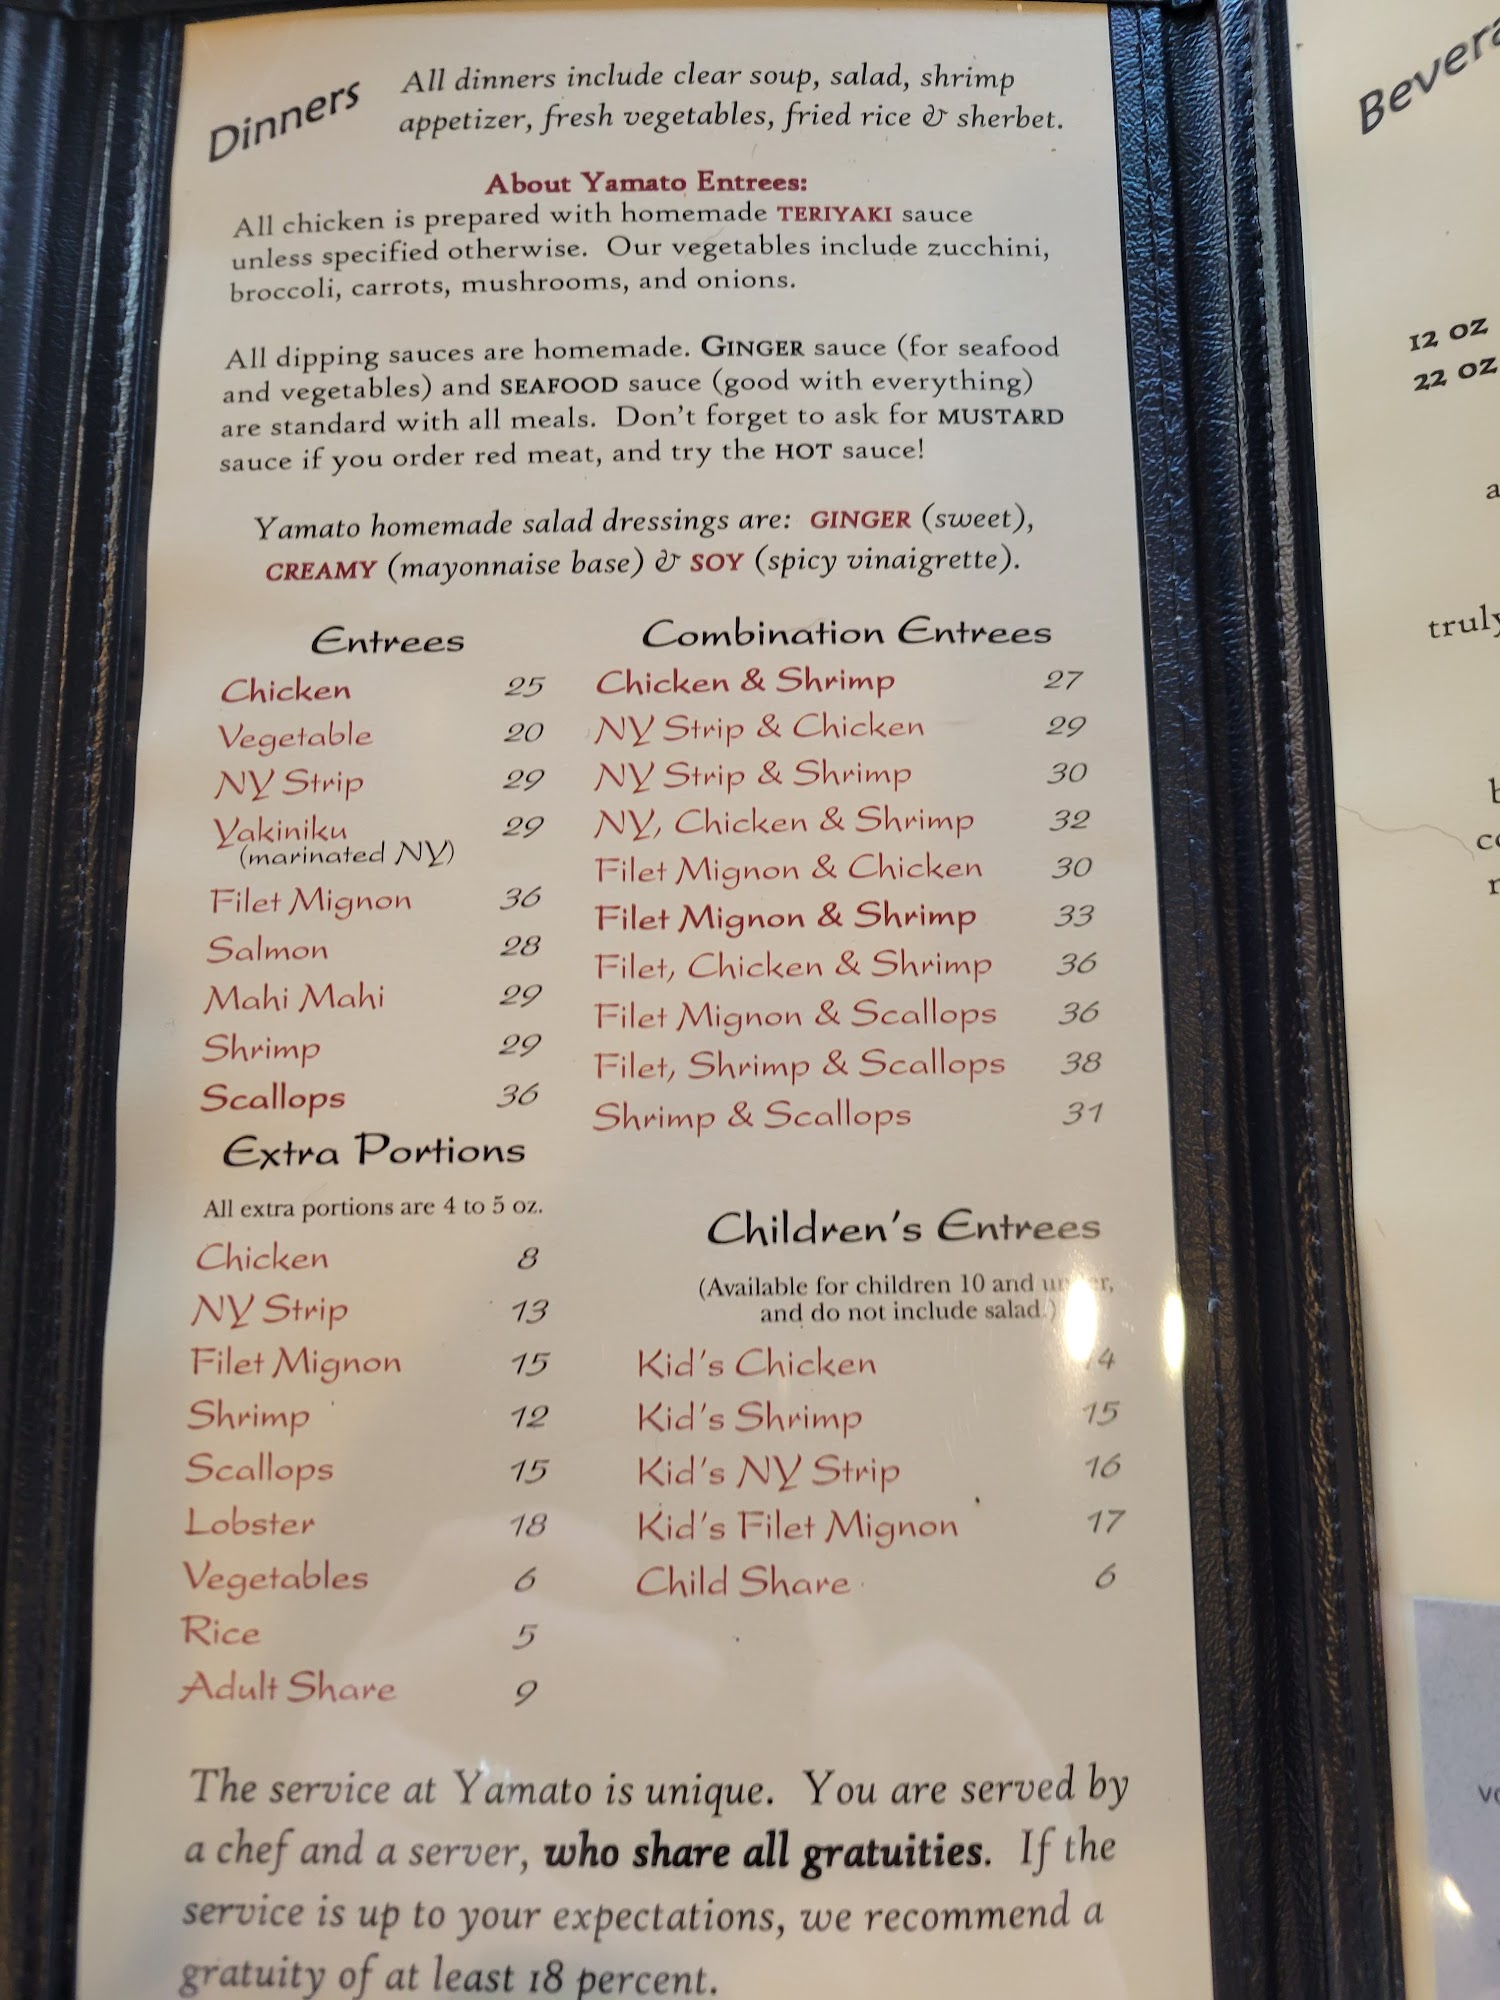 Dinners
All dinners include clear soup, salad, shrimp
appetizer, fresh vegetables, fried rice & sherbet.
About Yamato Entrees:
All chicken is prepared with homemade TERIYAKI sauce
unless specified otherwise. Our vegetables include zucchini,
broccoli, carrots, mushrooms, and onions.
All dipping sauces are homemade. GINGER sauce (for seafood
and vegetables) and SEAFOOD sauce (good with everything)
are standard with all meals. Don't forget to ask for MUSTARD
sauce if you order red meat, and try the HOT sauce!
Yamato homemade salad dressings are: GINGER (sweet),
CREAMY (mayonnaise base) & SOY (spicy vinaigrette).
Entrees
Chicken 25
Vegetable 20
NY Strip 29
Yakiniku 29
(marinated NY)
Filet Mignon 36
Salmon 28
Mahi Mahi 29
Shrimp 29
Scallops 36
Combination Entrees
Chicken & Shrimp 27
NY Strip & Chicken 29
NY Strip & Shrimp 30
NY, Chicken & Shrimp 32
Filet Mignon & Chicken 30
Filet Mignon & Shrimp 33
Filet, Chicken & Shrimp 36
Filet Mignon & Scallops 36
Filet, Shrimp & Scallops 38
Shrimp & Scallops 31
Extra Portions
All extra portions are 4 to 5 oz.
Chicken 8
NY Strip 13
Filet Mignon 15
Shrimp 12
Scallops 15
Lobster 18
Vegetables 6
Rice 5
Adult Share 9
Children's Entrees
(Available for children 10 and under,
and do not include salad.)
Kid's Chicken
Kid's Shrimp 15
Kid's NY Strip 16
Kid's Filet Mignon 17
Child Share 6
The service at Yamato is unique. You are served by
a chef and a server, who share all gratuities. If the
service is up to your expectations, we recommend a
gratuity of at least 18 percent.
12 oz
22 oz